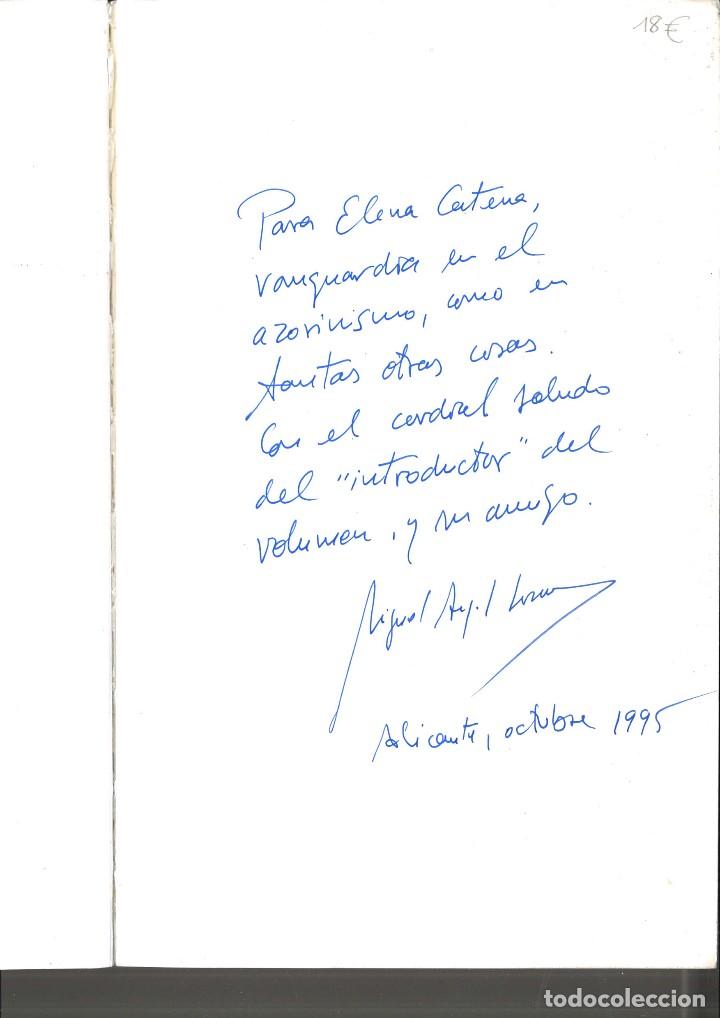 18€
Para Elena Catena,
vanguardia en el
azorinismo, como en
tantas otras cosas.
Con el cordial saludo
del "introductor" del
volumen, y su amigo.
Miguel Angel Lozano
Alicante, octubre 1995
todocoleccion